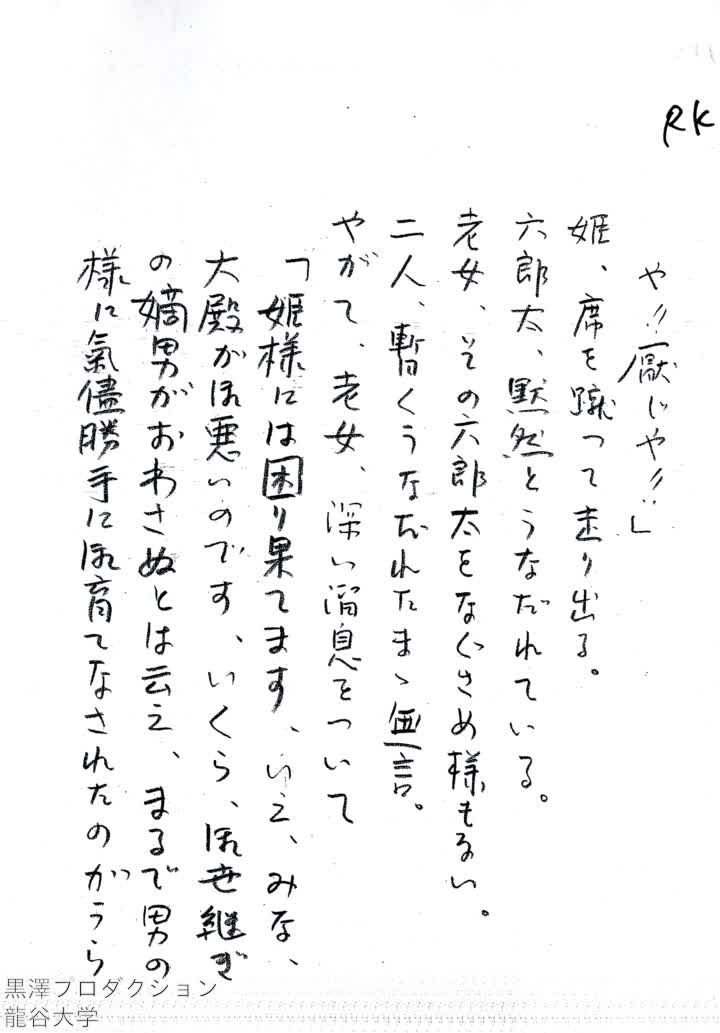 RK
や!!厭じや!!」
姫、席を蹴つて走り出る。
六郎太、黙然とうなだれている。
老女、その六郎太をなぐさめ様もない。
二人、暫くうなだれたまゝ無言。
やがて、老女、深い溜息をついて
「姫様には困り果てます、いえ、みな、
大殿がお悪いのです、いくら、お世継ぎ
の嫡男がおわさぬとは云え、まるで男の
様に氣儘勝手にお育てなされたのがうら
黒澤プロダクション
龍谷大学